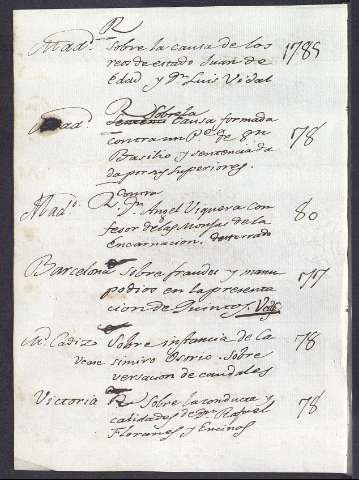 R
Mad.d Sobre la causa de los 1785
reos de estado Juan de
Edad y Dn Luis Vidal
R Sobre la
Mad.d Causa formada
contra un P.e de Sn 78
Basilio y sentenciada
da por sus superiores.
Contra
Mad.d R. Fr. Angel Viguera con 80
fesor de las Monjas de la
Encarnacion. desterrado
Barcelona Sobre fraudes y mani 77
podios en la presenta
cion de Quintos. Vease
M. Cadiz Sobre instancia de Ca 78
Vease simiro Osorio. Sobre
versacion de caudales
Victoria R Sobre la conducta y 78
calidades de Dn Rafael
Floranes y Encinos